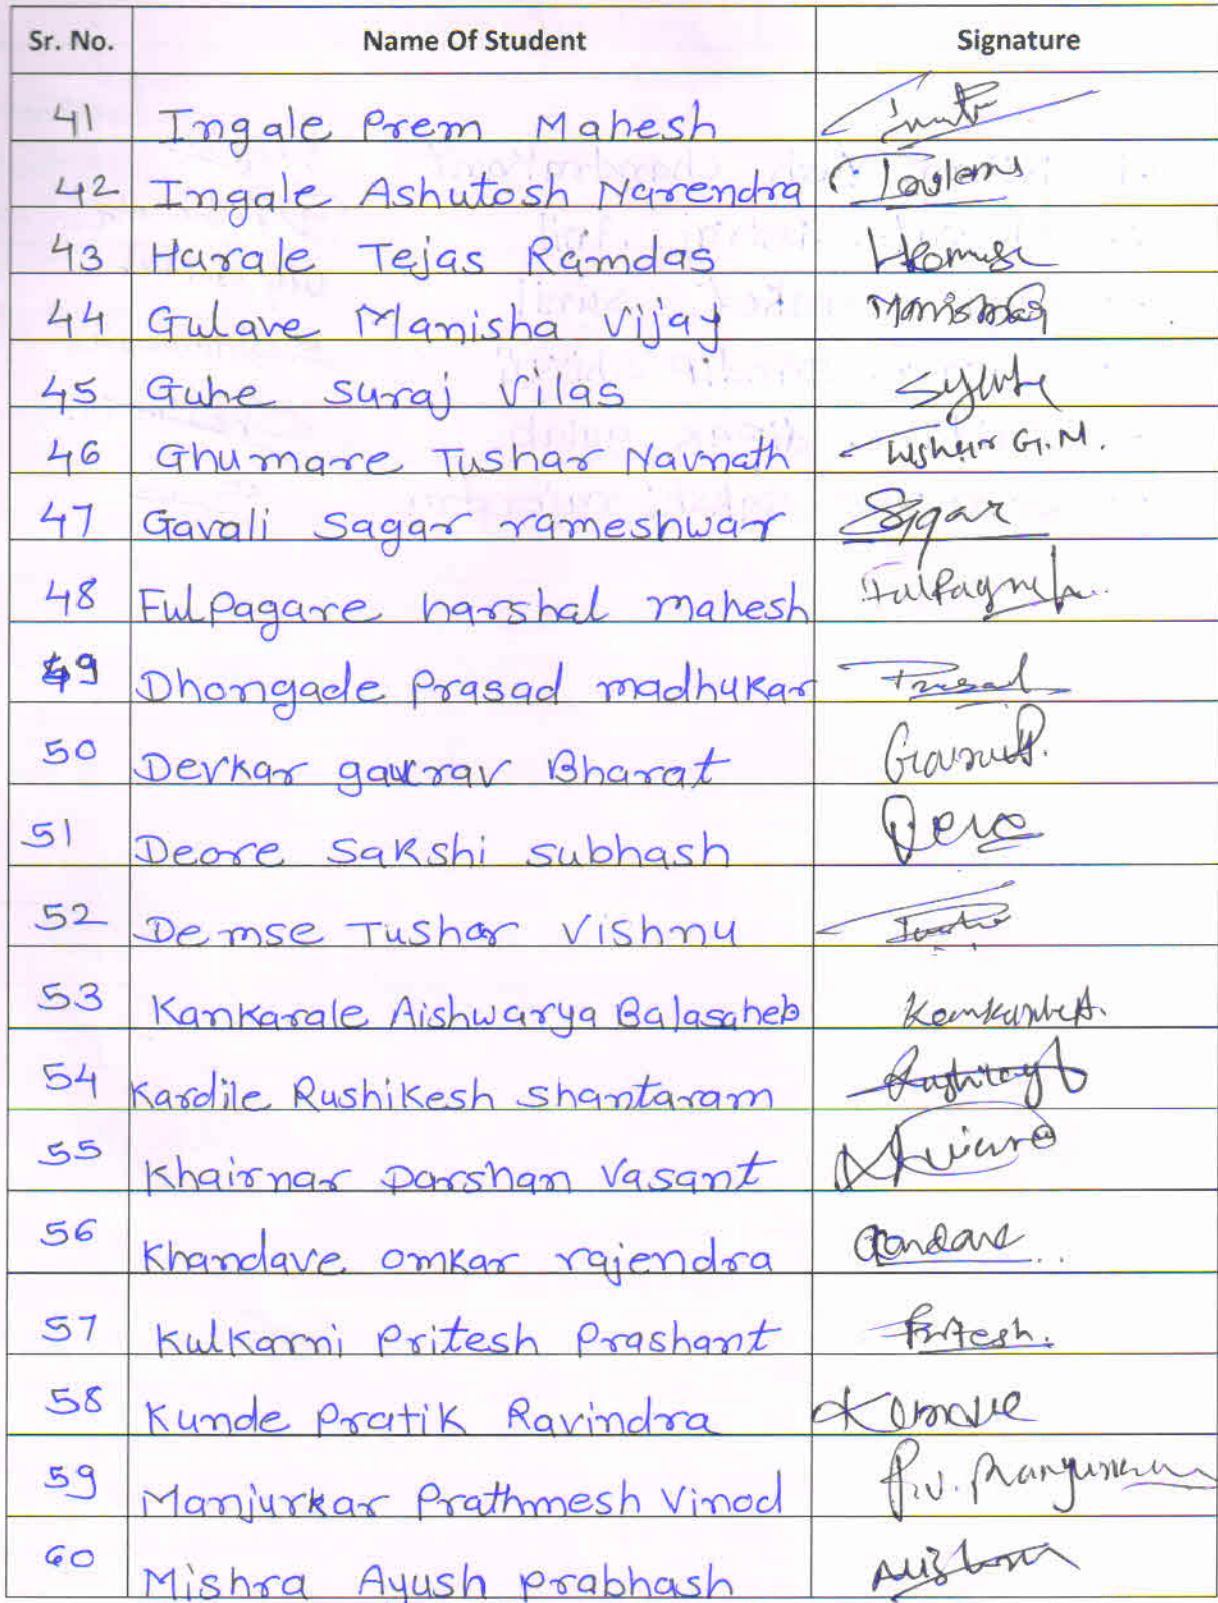 Sr. No. Name Of Student Signature
41 Ingale Prem Mahesh
42 Ingale Ashutosh Narendra
43 Harale Tejas Ramdas
44 Gulave Manisha Vijay
45 Guhe Suraj Vilas
46 Ghumare Tushar Navnath Tushar G.N.
47 Gavali Sagar rameshwar Sagar
48 Fulpagare harshal mahesh
49 Dhongade Prasad madhukar Prasad
50 Devkar gaurav Bharat
51 Deore Sakshi subhash
52 Demse Tushar Vishnu
53 Kankarale Aishwarya Balasaheb
54 Kardile Rushikesh Shantaram
55 Khairnar Darshan Vasant
56 Khandave omkar rajendra
57 Kulkarni Pritesh Prashant Pritesh.
58 Kunde Pratik Ravindra
59 Manjurkar Prathmesh Vinod
60 Mishra Ayush prabhash